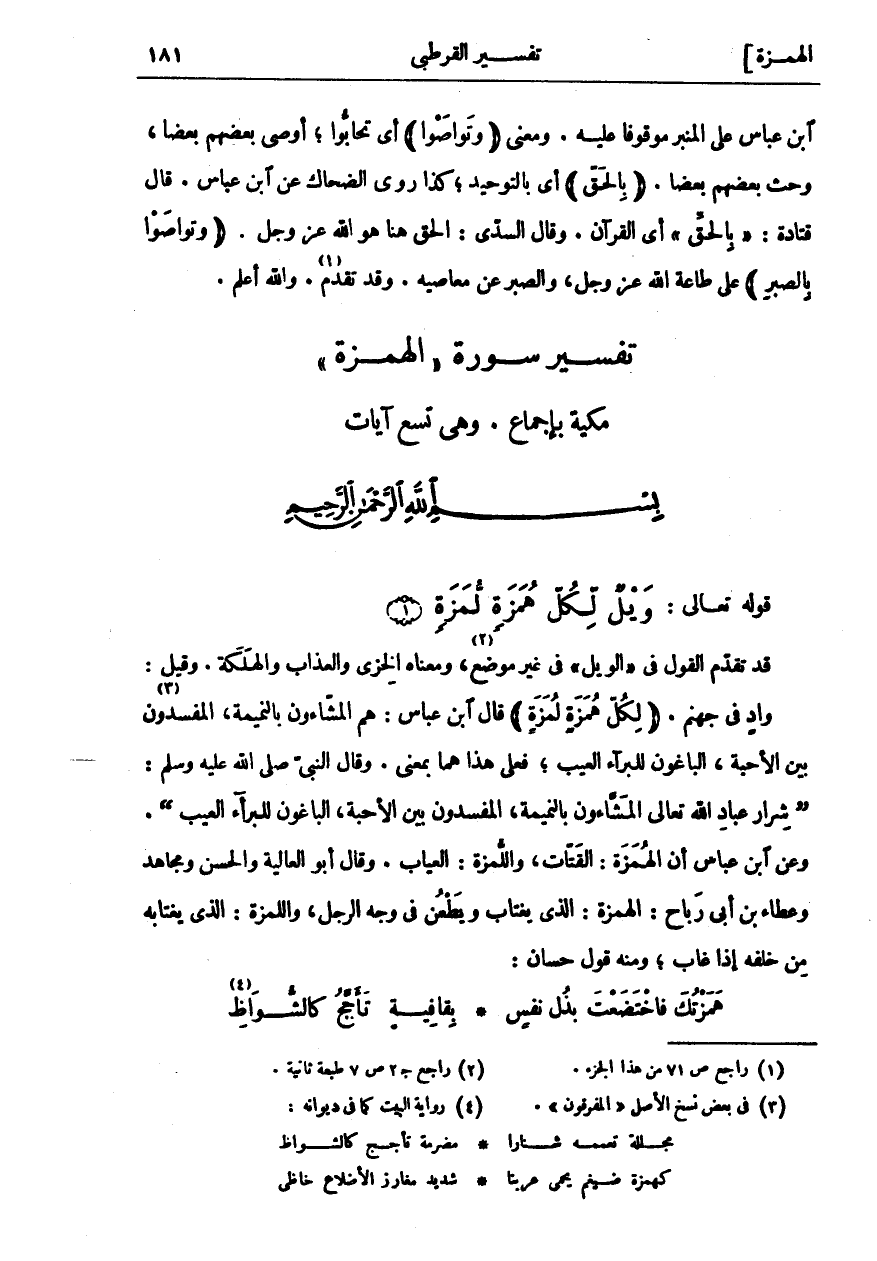 الهمـزة]
تفسـير القرطبى
١٨١
ٱبن عباس على المنبر موقوفا عليـه . ومعنى ﴿ وتَواصَوْا ﴾ أى تحابُّوا ؛ أوصى بعضهم بعضا ،
وحث بعضهم بعضا . ﴿ بِالحَقّ ﴾ أى بالتوحيد ؛ كذا روى الضحاك عن ٱبن عباس . قال
قتادة : « بِالحقِّ » أى القرآن . وقال السدّى : الحق هنا هو الله عز وجل . ﴿ وتواصَوْا
بِالصبرِ ﴾ على طاعة الله عز وجل، والصبر عن معاصيه . وقد تقدّم (١) . والله أعلم .
تفسـير سـورة « الهمـزة »
مكية بإجماع . وهى تسع آيات
بِسْـمِ ٱللَّهِ ٱلرَّحْمَٰنِ ٱلرَّحِيمِ
قوله تعـالى : وَيْلٌ لِّكُلِّ هُمَزَةٍ لُّمَزَةٍ ١
قد تقدّم القول فى «الويل» فى غير موضع (٢)، ومعناه الخِزى والعذاب والهَلَكة . وقيل :
وادٍ فى جهنم . ﴿ لِكُلِّ هُمَزَةٍ لُمَزَةٍ ﴾ قال ٱبن عباس : هم المشّاءون بالنميمة، المفسدون (٣)
بين الأحبة ، الباغون للبرآء العيب ؛ فعلى هذا هما بمعنى . وقال النبىّ صلى الله عليه وسلم :
” شِرار عبادِ الله تعالى المَشَّاءون بالنميمة، المفسدون بين الأحبة، الباغون للبرآء العيب “ .
وعن ٱبن عباس أن الهُمَزَة : القَتّات، واللُّمزة : العياب . وقال أبو العالية والحسن ومجاهد
وعطاء بن أبى رَباح : الهمزة : الذى يغتاب ويَطْعُن فى وجه الرجل، واللمزة : الذى يغتابه
مِن خلفه إذا غاب ؛ ومنه قول حسان :
هَمَزْتُكَ فَاخْتَضَعْتَ بذُل نفسٍ * بِقافِيـةٍ تَأَجَّجُ كالشُّـوَاظِ (٤)
(١) راجع ص ٧١ من هذا الجزء .
(٢) راجع جـ ٢ ص ٧ طبعة ثانية .
(٣) فى بعض نسخ الأصل « المفرقون » .
(٤) رواية البيت كما فى ديوانه :
مجـللة تعممـه شـنارا * مضرمة تأجـج كالشـواظ
كهمزة ضـيغم يحمى عرينا * شديد مغارز الأضلاع خاظى